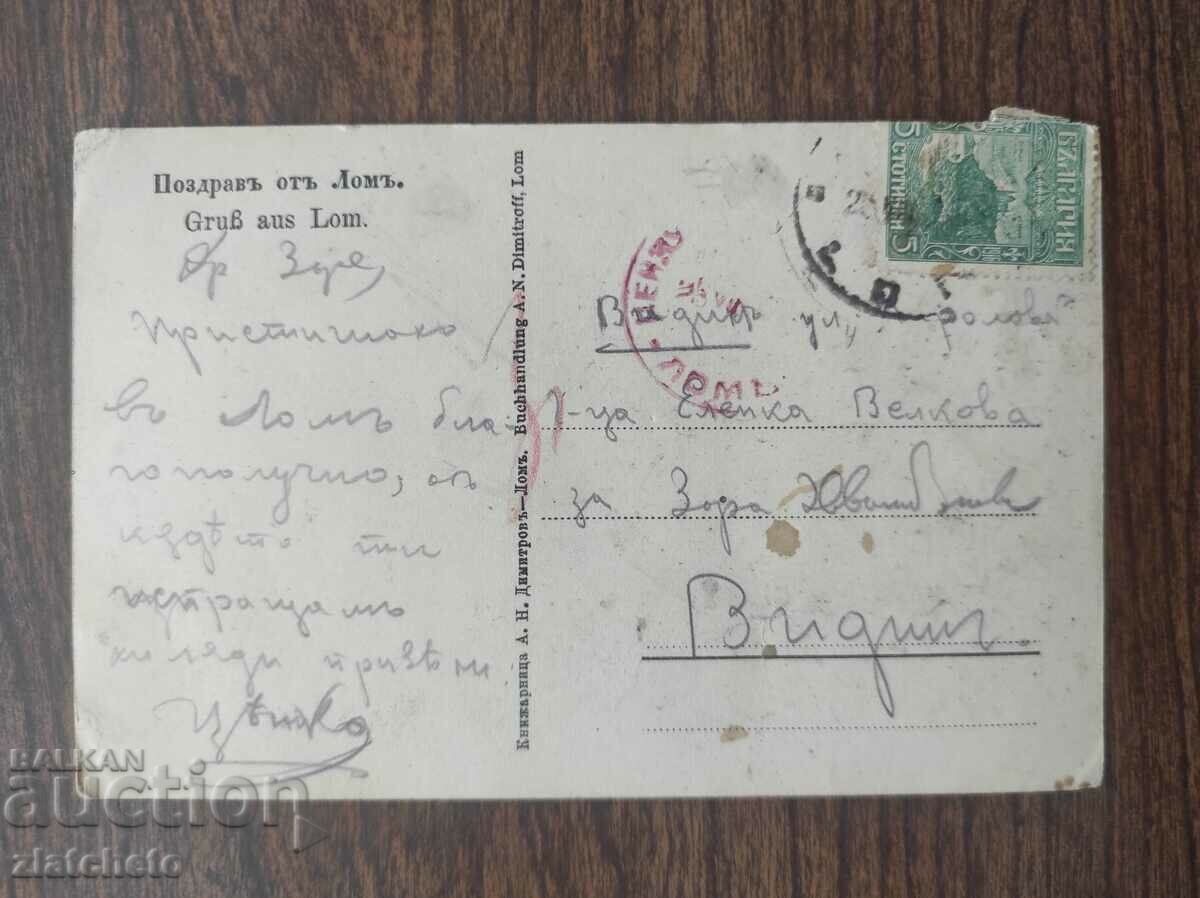 Поздравъ отъ Ломъ.
Gruß aus Lom.
Др Зоре,
Пристигнахъ
въ Ломъ бла-
гополучно, отъ
кѫдѣто ти
изпращамъ
хиляди привѣти
Цвѣтко
Книжарница А. Н. Димитровъ—Ломъ. Buchhandlung A. N. Dimitroff, Lom
БЪЛГАРИЯ
5 СТОТИНКИ 5
ЛОМЪ
Видинъ ул.
Г-ца Еленка Велкова
за Зора
Видинъ.
BALKAN
auction
zlatcheto